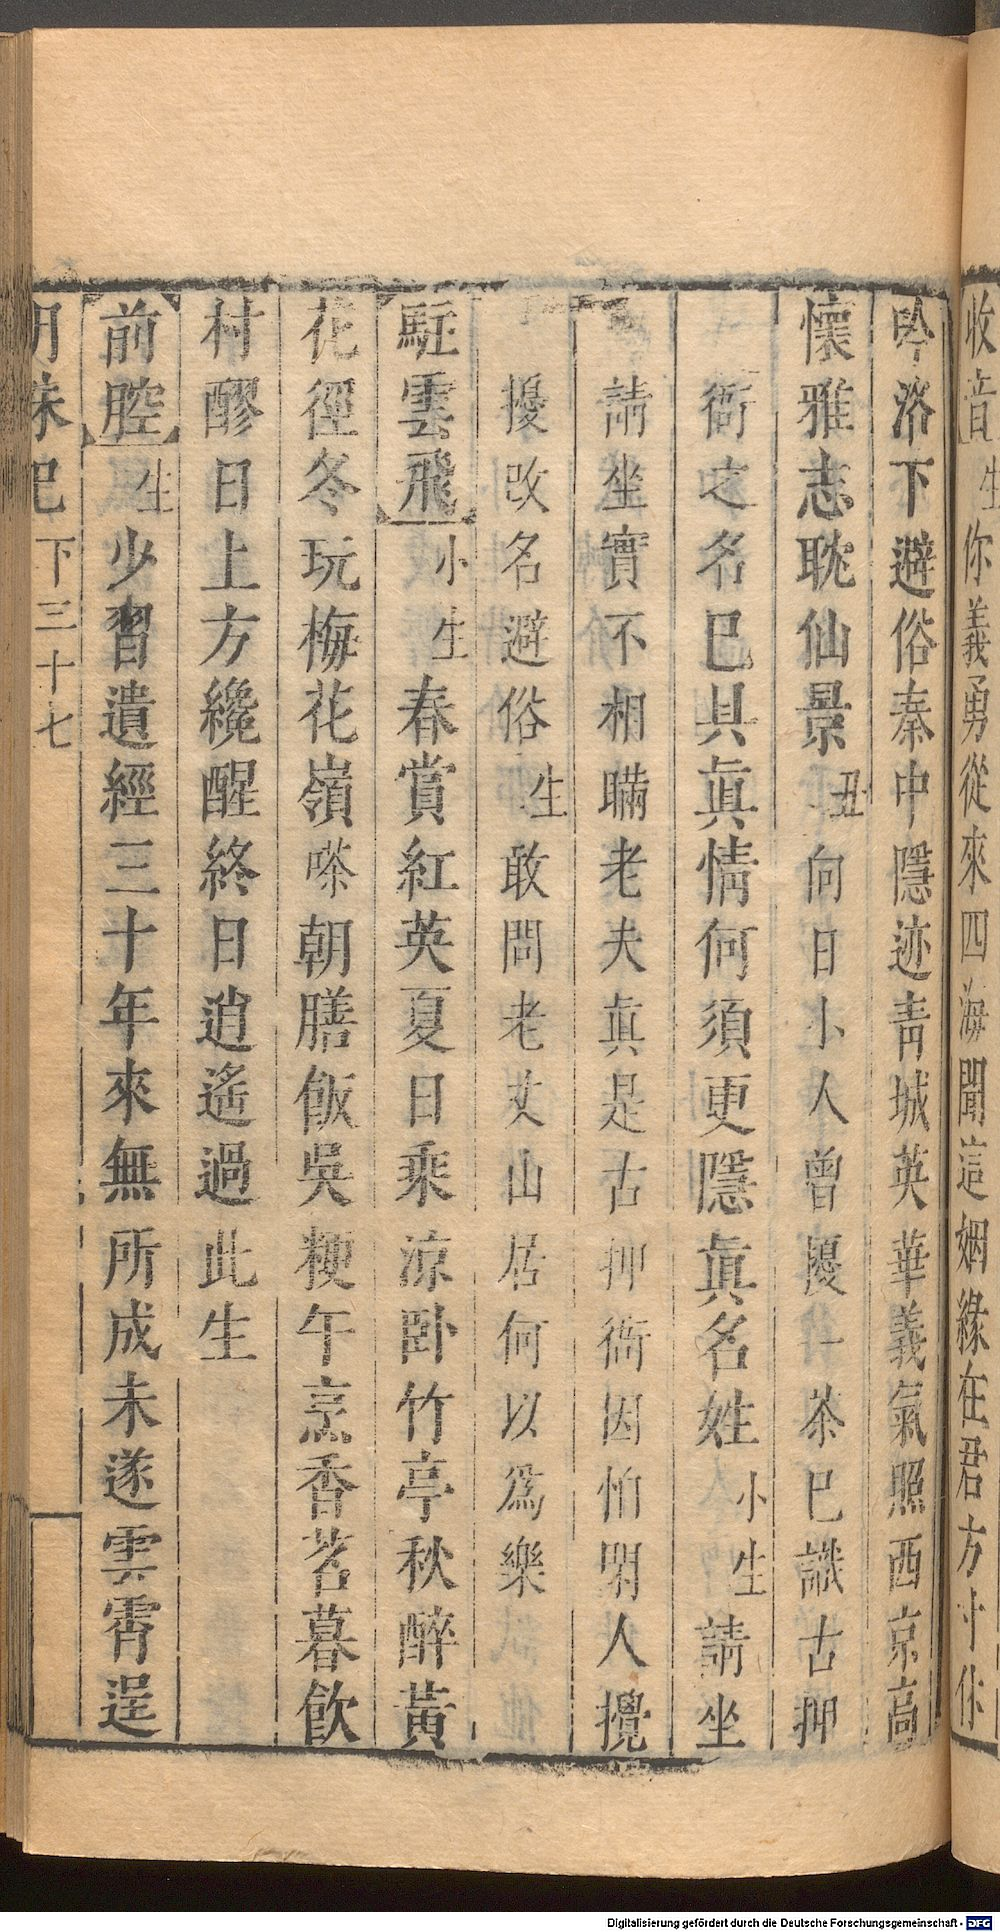 收音生你義勇從來四海聞這姻緣在君方寸你
吟洛下避俗秦中隱迹靑城英華義氣照西京高
懷雅志耽仙景丑向日小人曾擾一茶巳識古押
衙之名巳具眞情何須更隱眞名姓小生請坐
請坐實不相瞞老夫眞是古押衙因怕閑人攪
擾改名避俗生敢問老丈山居何以爲樂
駐雲飛小生春賞紅英夏日乘涼卧竹亭秋醉黃
花徑冬玩梅花嶺嗏朝膳飯吳粳午烹香茗暮飲
村醪日上方纔醒終日逍遙過此生
前腔生少習遺經三十年來無所成未遂雲霄逞
明珠記 下 三十七
Digitalisierung gefördert durch die Deutsche Forschungsgemeinschaft - DFG